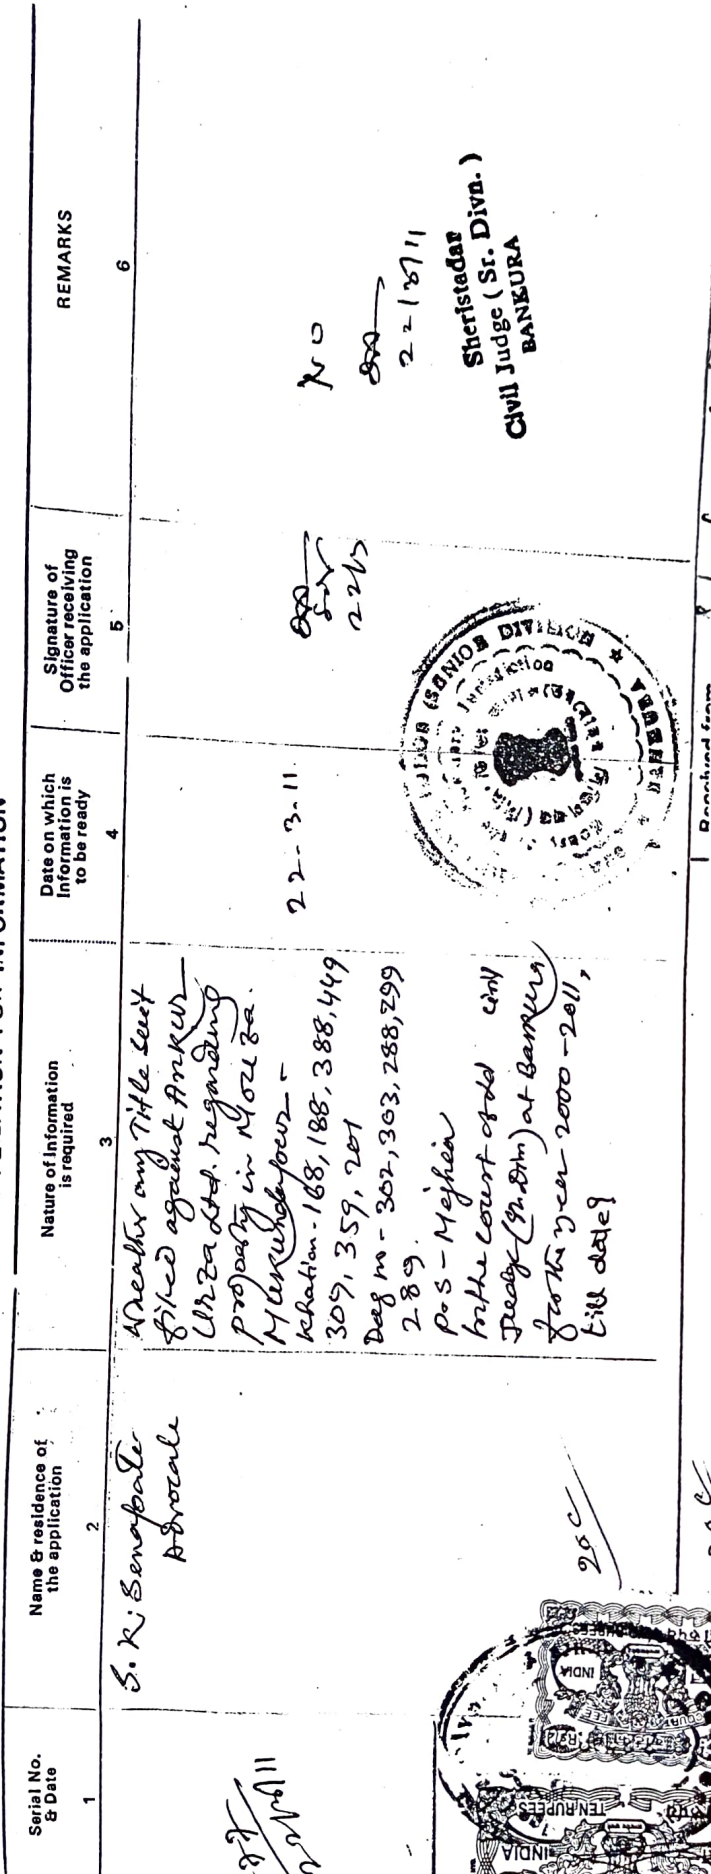 Serial No.
& Date
Name & residence of
the application
Nature of Information
is required
Date on which
Information is
to be ready
Signature of
Officer receiving
the application
REMARKS
1
2
3
4
5
6
S. K. Senapati
Advocate
Wheather any Title suit
filed against Ankur
Urza Ltd. regarding
property in Mouza.
Mukundapur -
Khatian - 168, 188, 388, 449
309, 359, 201
Dag no - 302, 303, 288, 299
289.
P.S - Mejhia
in the court of Ld civil
Judge (Sr. Divn) at Bankura
for the year 2000 - 2011,
till date?
22-3-11
22/3
No
22/3/11
Sheristadar
Civil Judge ( Sr. Divn. )
BANKURA
(SENIOR DIVISION)
INDIA
TEN RUPEES
INDIA
Received from